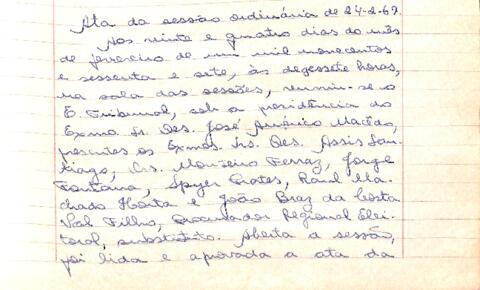 Ata da sessão ordinária de 24-2-67.
Aos vinte e quatro dias do mês
de fevereiro de um mil novecentos
e sessenta e sete, às dezessete horas,
na sala das sessões, reuniu-se o
E. Tribunal, sob a presidência do
Exmo. Sr. Des. José Américo Macêdo,
presentes os Exmos. Srs. Des. Assis San-
tiago, Drs. Monteiro Ferraz, Jorge
Fontana, Spyer Prates, Raul Ma-
chado Horta e João Braz da Costa
Val Filho, Procurador Regional Elei-
toral, substituto. Aberta a sessão,
foi lida e aprovada a ata da